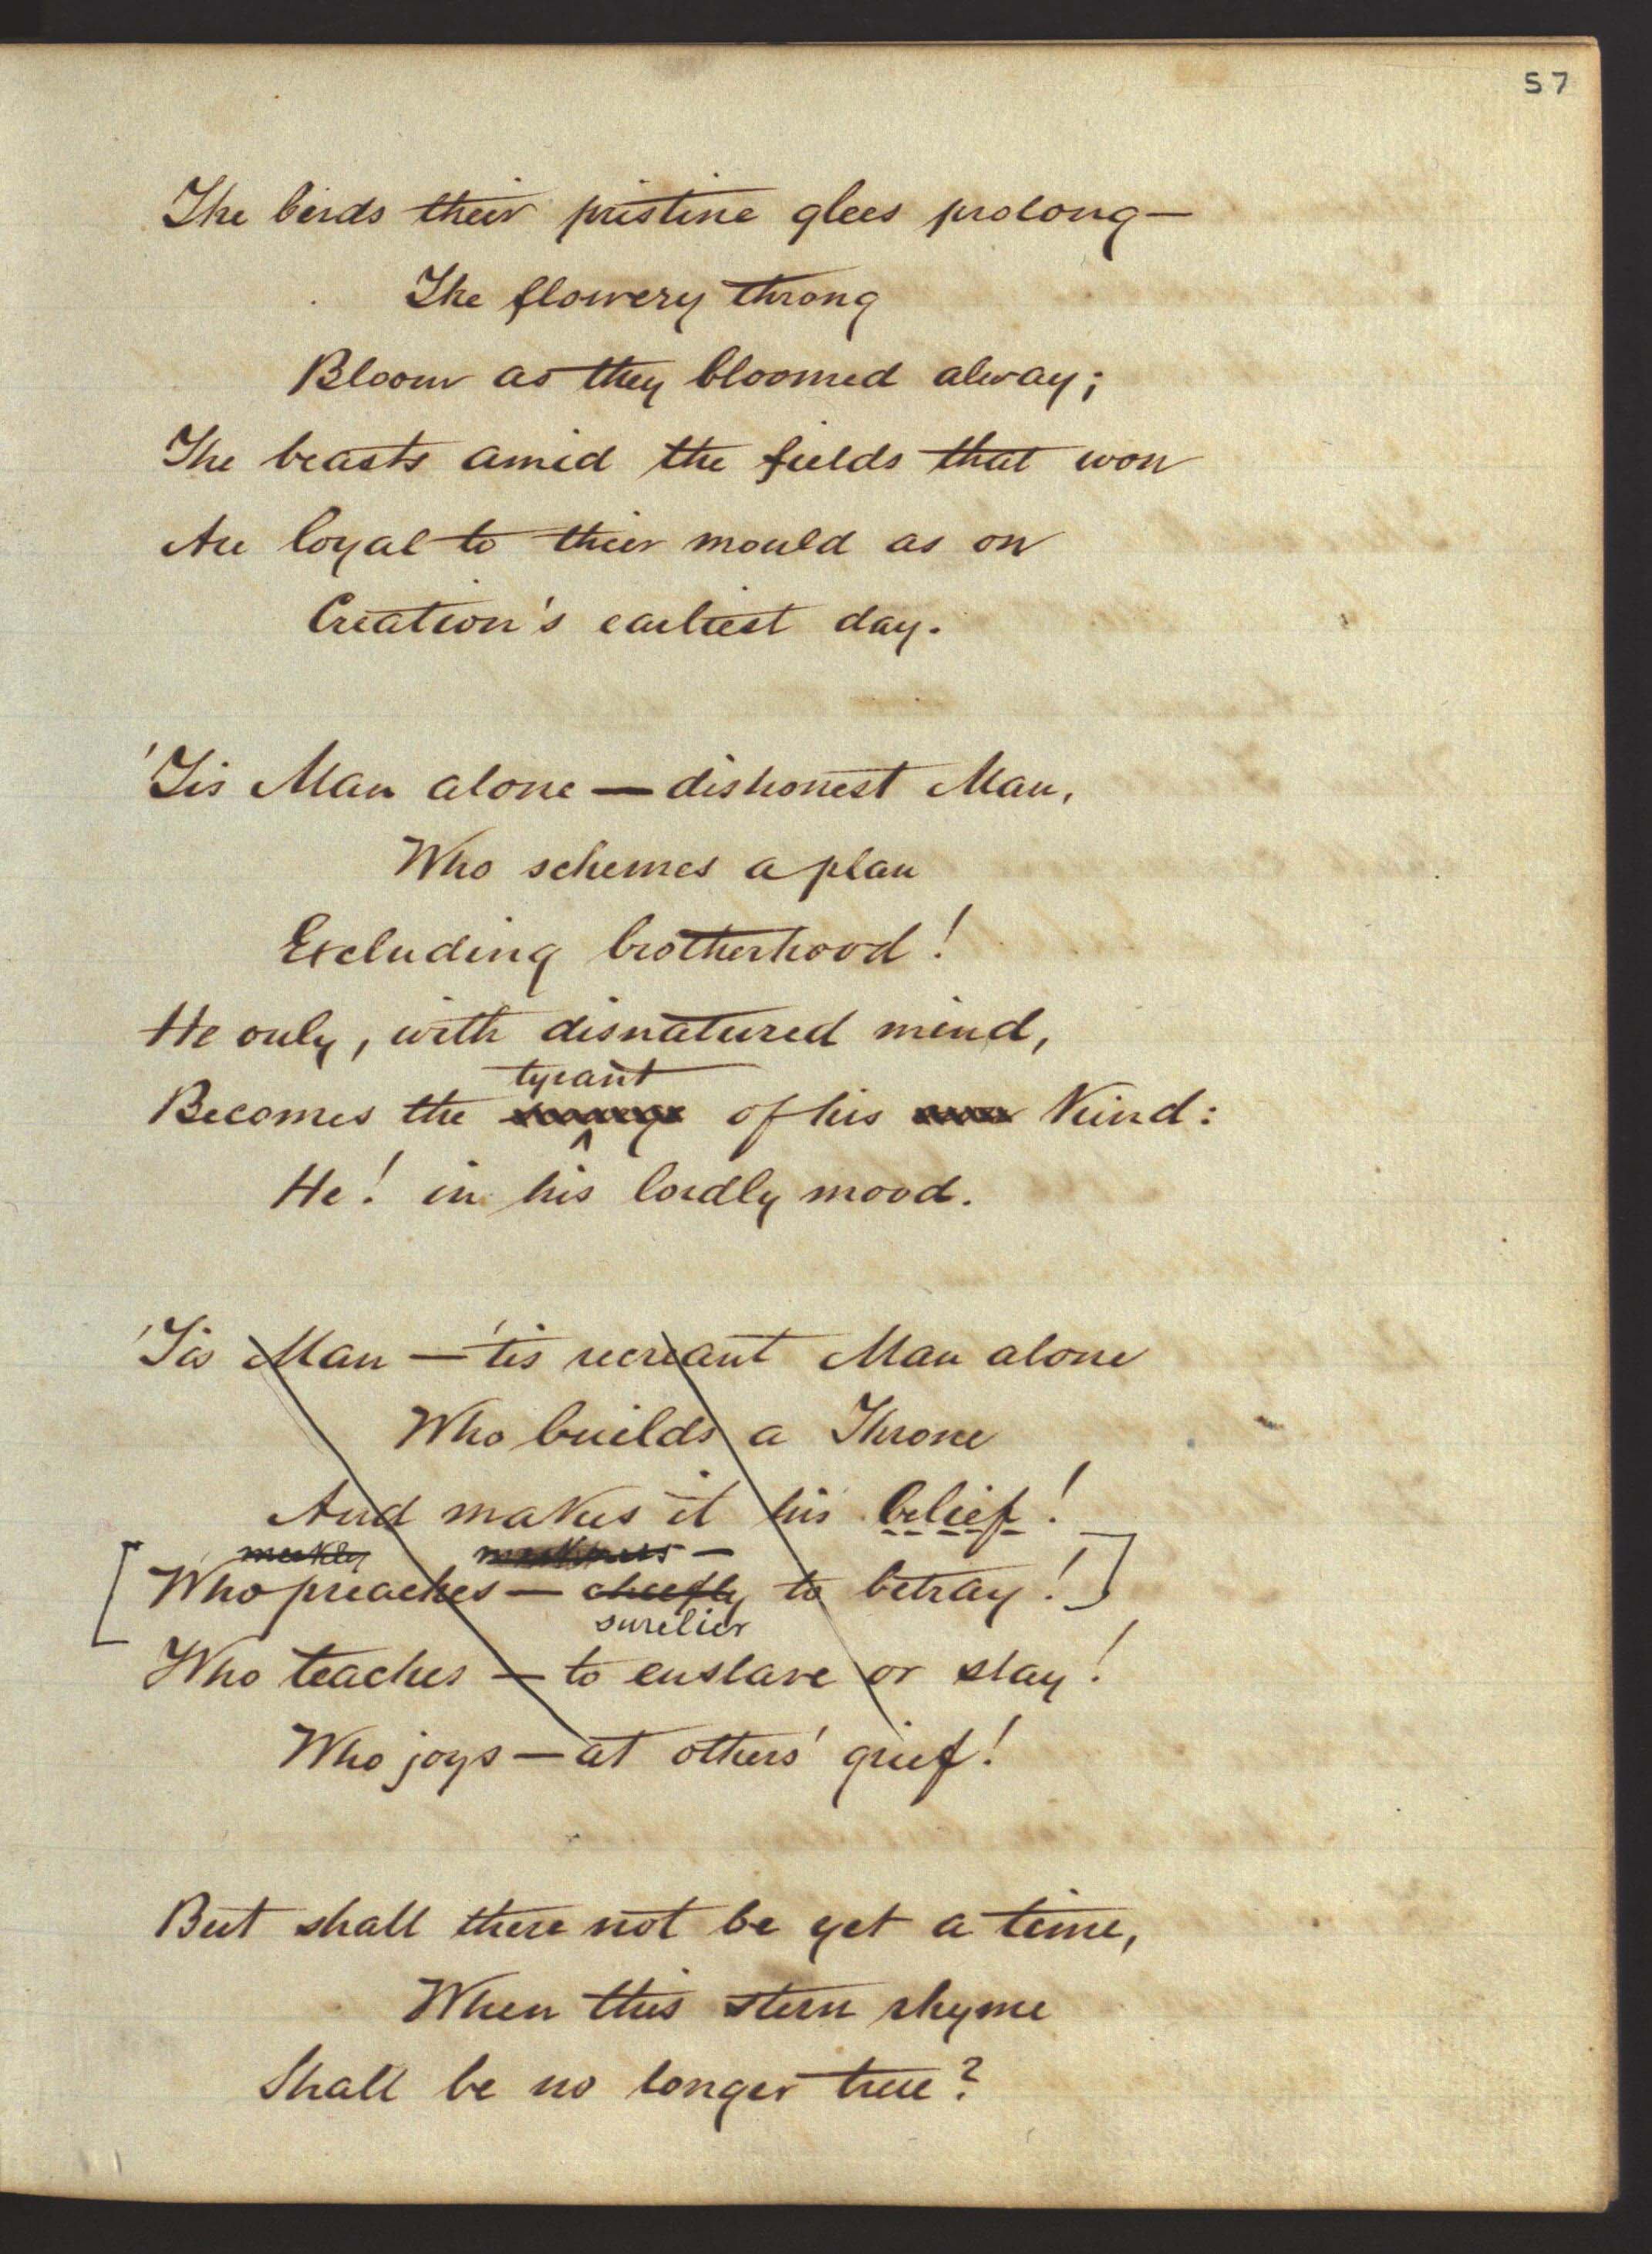 57
The birds their pristine glees prolong—
The flowery throng
Bloom as they bloomed alway;
The beasts amid the fields that won
Are loyal to their mould as on
Creation's earliest day.
'Tis Man alone — dishonest Man,
Who schemes a plan
Excluding brotherhood!
He only, with disnatured mind,
tyrant
Becomes the of his Kind:
He! in his lordly mood.
'Tis Man — 'tis recreant Man alone
Who builds a Throne
And makes it his belief!
meekly —
[Who preaches — chiefly to betray!]
surelier
Who teaches — to enslave or slay!
Who joys — at others' grief!
But shall there not be yet a time,
When this stern rhyme
Shall be no longer true?